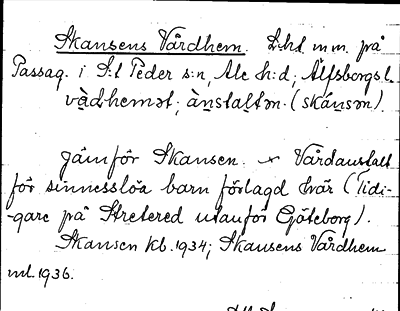 Skansens Vårdhem. Lht m m. på
Passag. i S:t Peder s:n, Ale h:d, Älfsborgs l.
vàdhemət; ànstaltən. (skánsən).
Jämför Skansen. × Vårdanstalt
för sinnesslöa barn förlagd här (Tidi-
-gare på Stretered utanför Göteborg).
Skansen Kb. 1934; Skansens Vårdhem
ml. 1936.